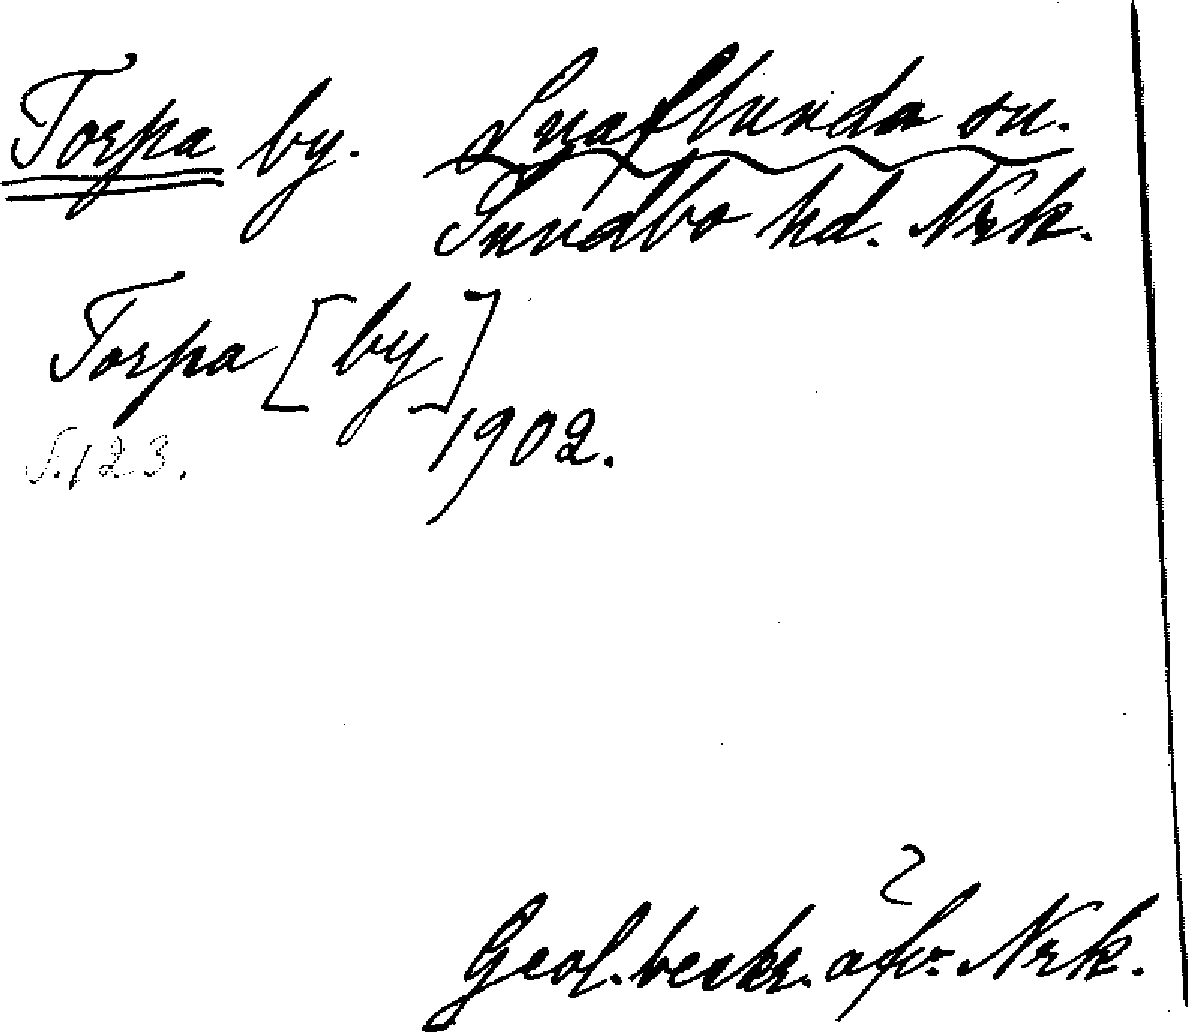 Torpa by. Snaflunda sn.
Sundbo hd. Nrk.
Torpa [by]
S. 123. 1902.
Geol. beskr. öfv. Nrk.